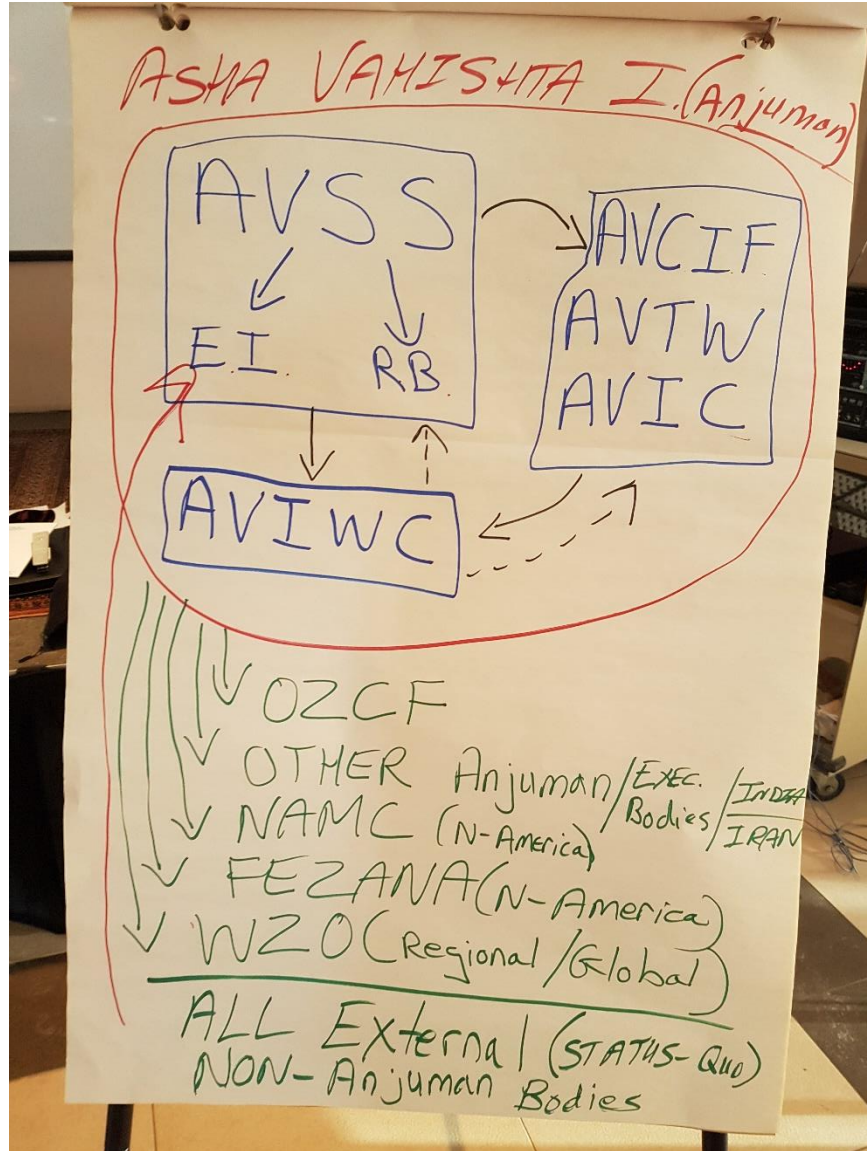 ASHA VAHISHTA I. (Anjuman)
AVSS
E.I. RB.
AVCIF
AVTW
AVIC
AVIWC
OZCF
OTHER Anjuman/EXEC. Bodies/INDIA IRAN
NAMC (N-America)
FEZANA (N-America)
WZO (Regional/Global)
ALL External (STATUS-QUO)
NON-Anjuman Bodies